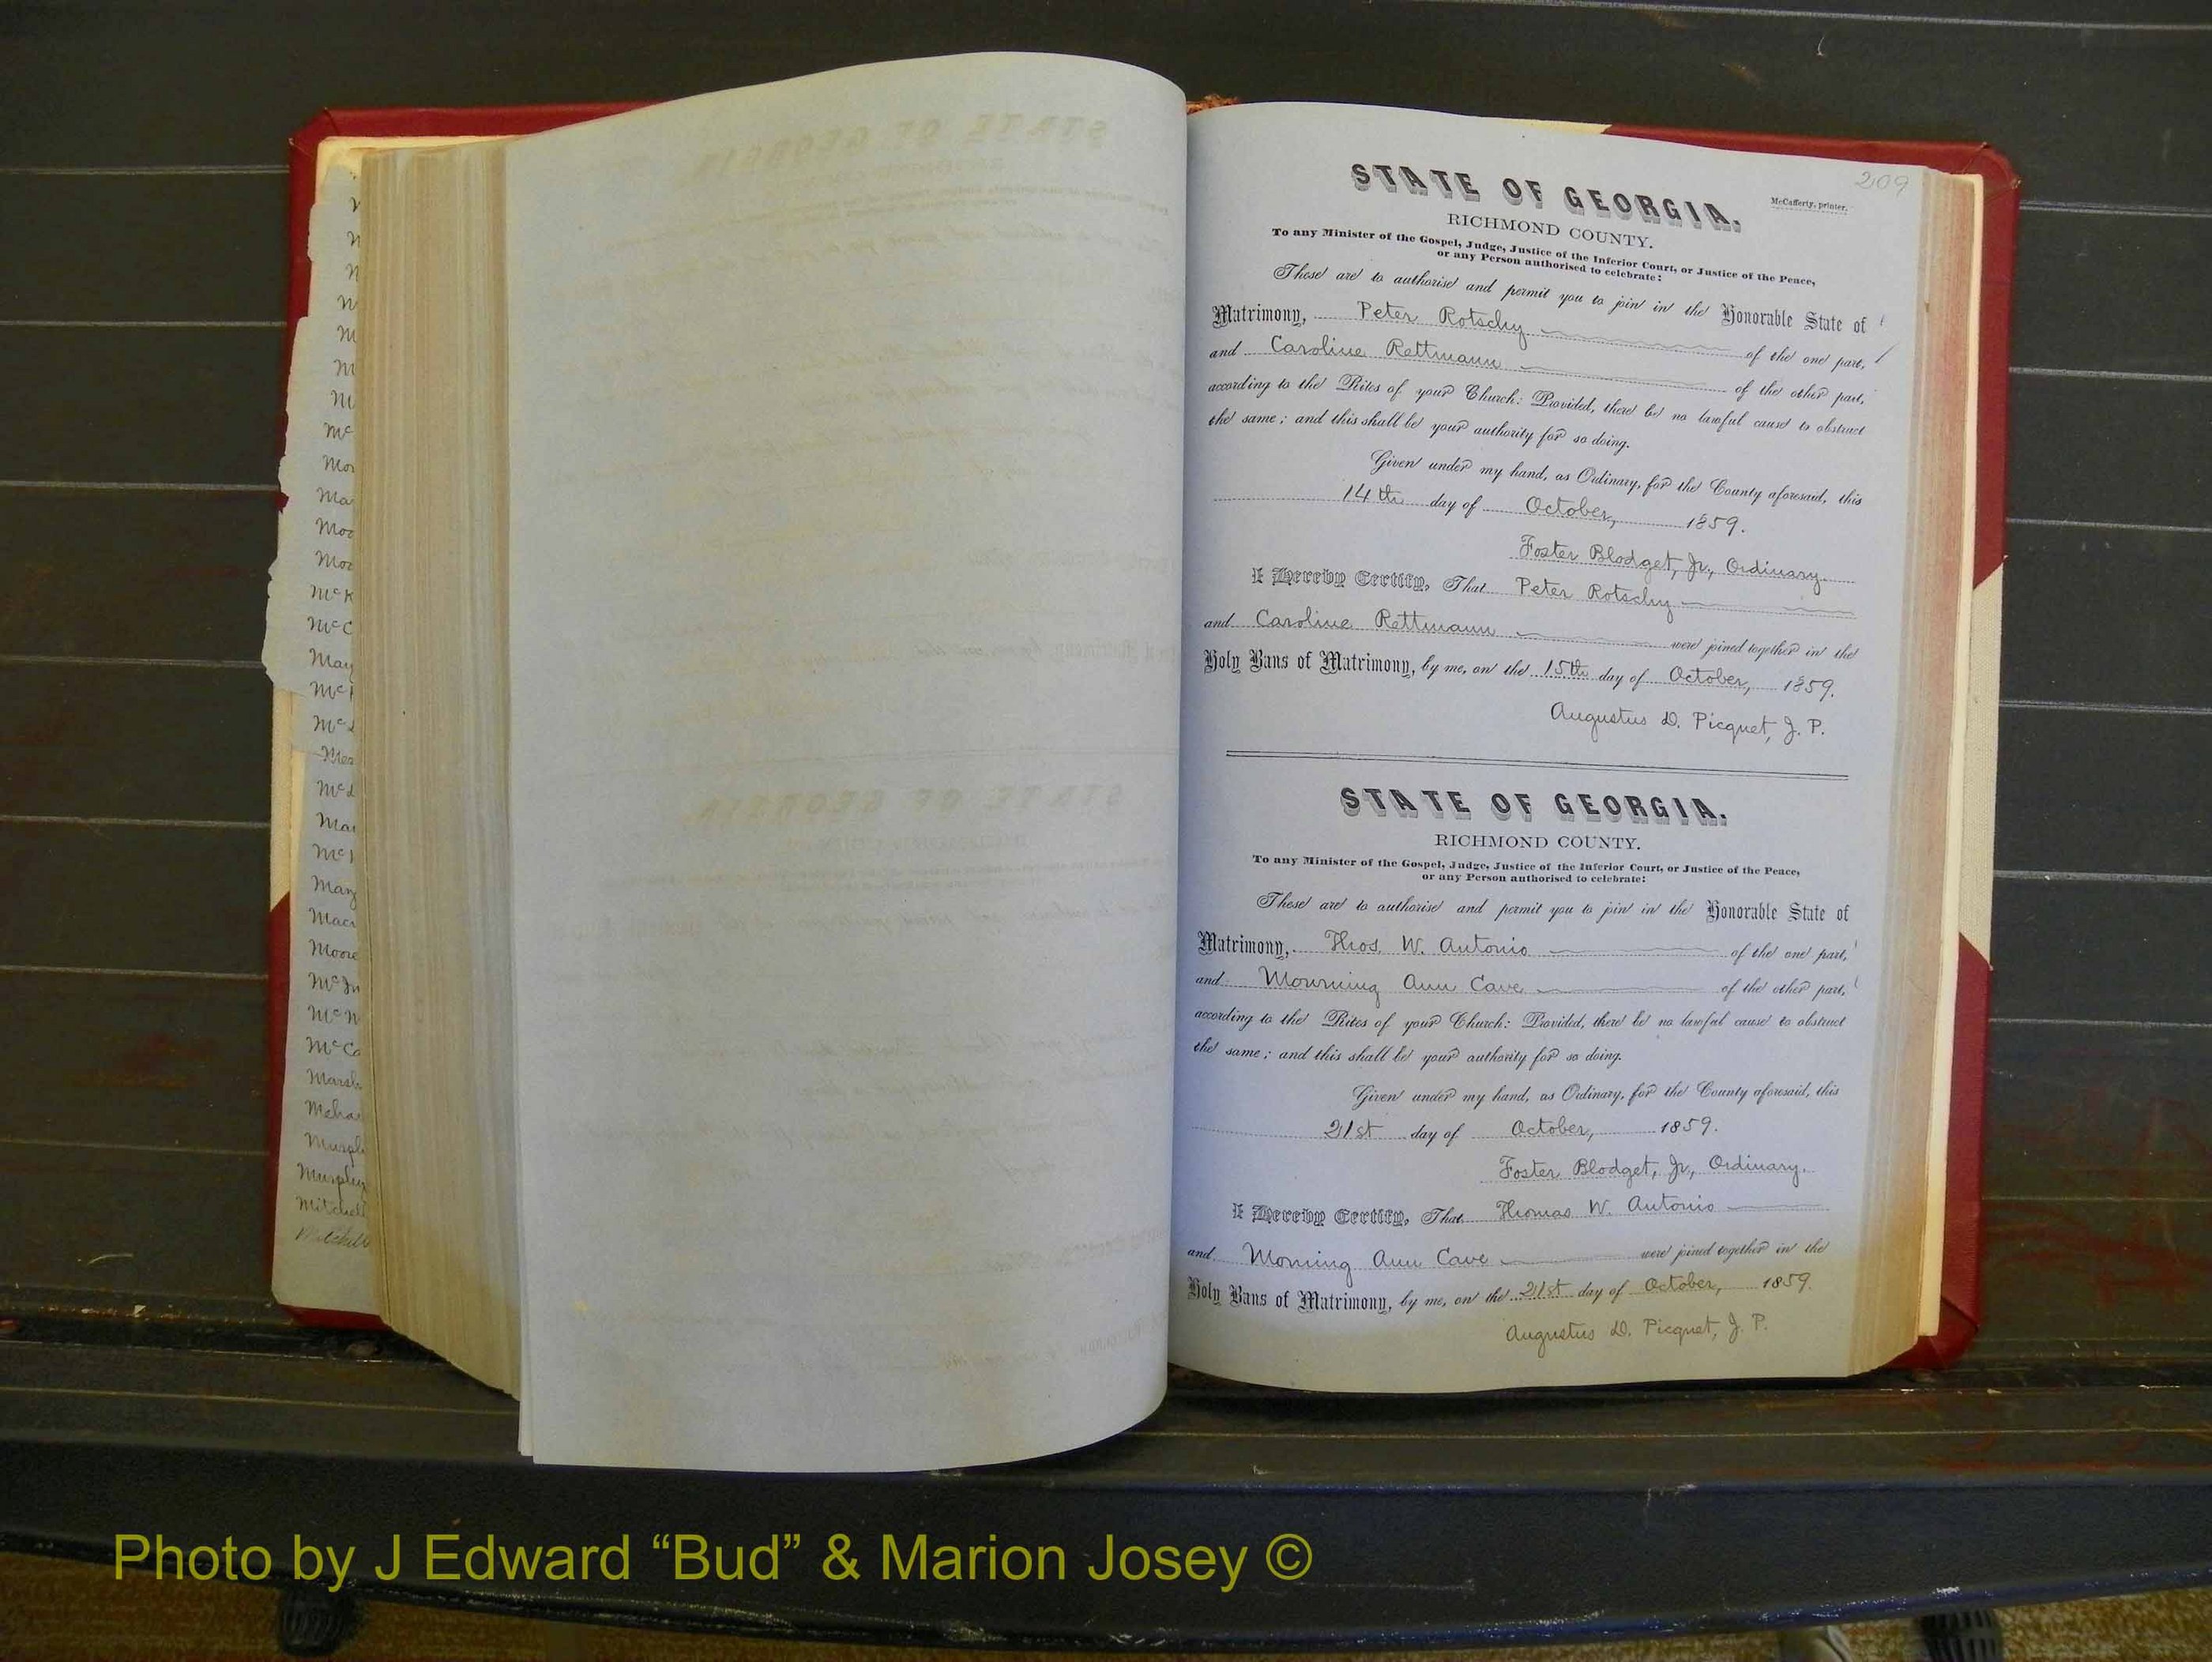 209
STATE OF GEORGIA.
McCafferty, printer.
RICHMOND COUNTY.
To any Minister of the Gospel, Judge, Justice of the Inferior Court, or Justice of the Peace,
or any Person authorised to celebrate:
These are to authorise and permit you to join in the Honorable State of
Matrimony, Peter Rotschy of the one part,
and Caroline Rettmann of the other part,
according to the Rites of your Church: Provided, there be no lawful cause to obstruct
the same; and this shall be your authority for so doing.
Given under my hand, as Ordinary, for the County aforesaid, this
14th day of October, 1859.
Foster Blodget, Jr., Ordinary.
I Hereby Certify, That Peter Rotschy
and Caroline Rettmann were joined together in the
Holy Bans of Matrimony, by me, on the 15th day of October, 1859.
Augustus D. Picquet, J. P.
STATE OF GEORGIA.
RICHMOND COUNTY.
To any Minister of the Gospel, Judge, Justice of the Inferior Court, or Justice of the Peace,
or any Person authorised to celebrate:
These are to authorise and permit you to join in the Honorable State of
Matrimony, Thos. W. Antonio of the one part,
and Mourning Ann Cave of the other part,
according to the Rites of your Church: Provided, there be no lawful cause to obstruct
the same; and this shall be your authority for so doing.
Given under my hand, as Ordinary, for the County aforesaid, this
21st day of October, 1859.
Foster Blodget, Jr., Ordinary.
I Hereby Certify, That Thomas W. Antonio
and Morning Ann Cave were joined together in the
Holy Bans of Matrimony, by me, on the 21st day of October, 1859.
Augustus D. Picquet, J. P.
Photo by J Edward “Bud” & Marion Josey ©